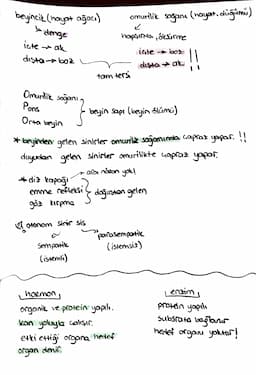 beyincik (hayat ağacı)
denge
içte → ak
dışta → boz
omurilik soğanı (hayat düğümü)
hapşırma, öksürme
içte → boz
dışta → ak !!
tam tersi
Omurilik soğanı
Pons
Orta beyin
beyin sapı (beyin ölümü)
* beyinden gelen sinirler omurilik soğanında çapraz yapar. !!
duyudan gelen sinirler omurilikte çapraz yapar.
* diz kapağı
emme refleksi
göz kırpma
doğuştan gelen
otonom sinir sis
sempatik
(istemli)
parasempatik
(istemsiz)
hormon
organik ve protein yapılı.
kan yoluyla çalışır.
etki ettiği organa hedef
organ denir.
enzim
protein yapılı
substrata bağlanır
hedef organı yoktur!